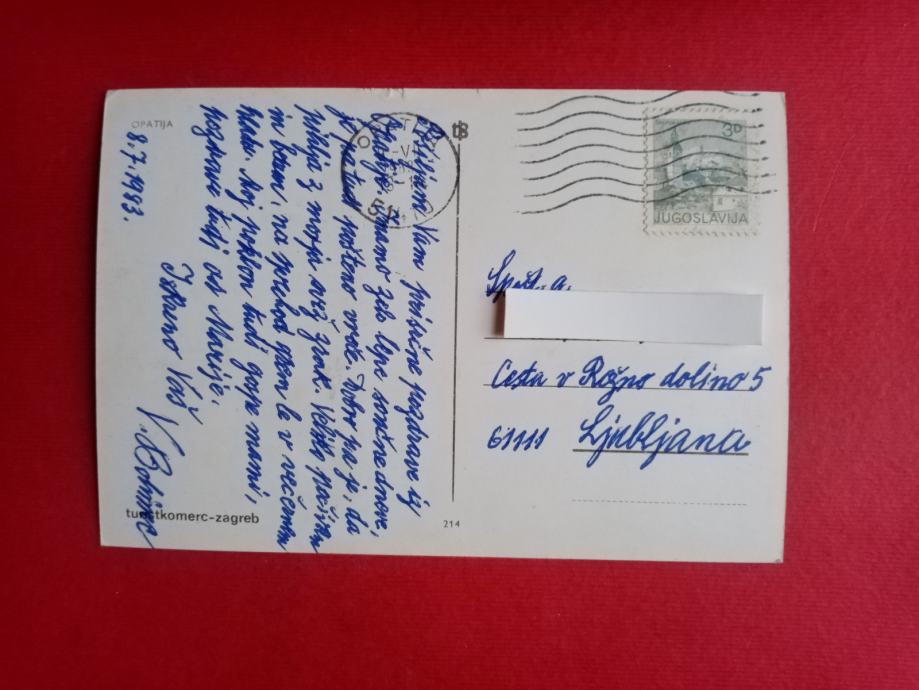 OPATIJA
8.7.1983.
Pošiljam Vam prisrčne pozdrave iz
Opatije. Imamo zelo lepe sončne dneve,
je pa tudi pošteno vroče. Dobro pa je, da
pihlja z morja svež zrak. Veliko počivam
in berem, na sprehod grem le v večernem
hladu. Moj poklon tudi gospe mami,
pozdrave tudi od Marije.
Iskreno Vaš
turistkomerc-zagreb
214
3D
JUGOSLAVIJA
Cesta v Rožno dolino 5
61111 Ljubljana